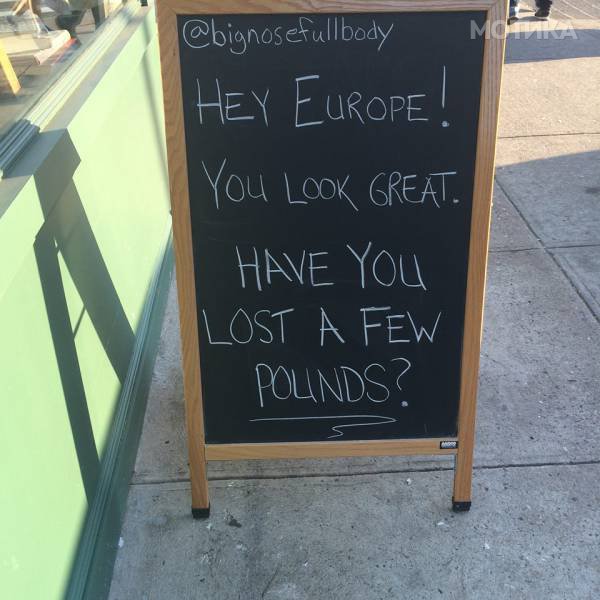 @bignosefullbody
МОТИКА
HEY EUROPE!
YOU LOOK GREAT.
HAVE YOU
LOST A FEW
POUNDS?